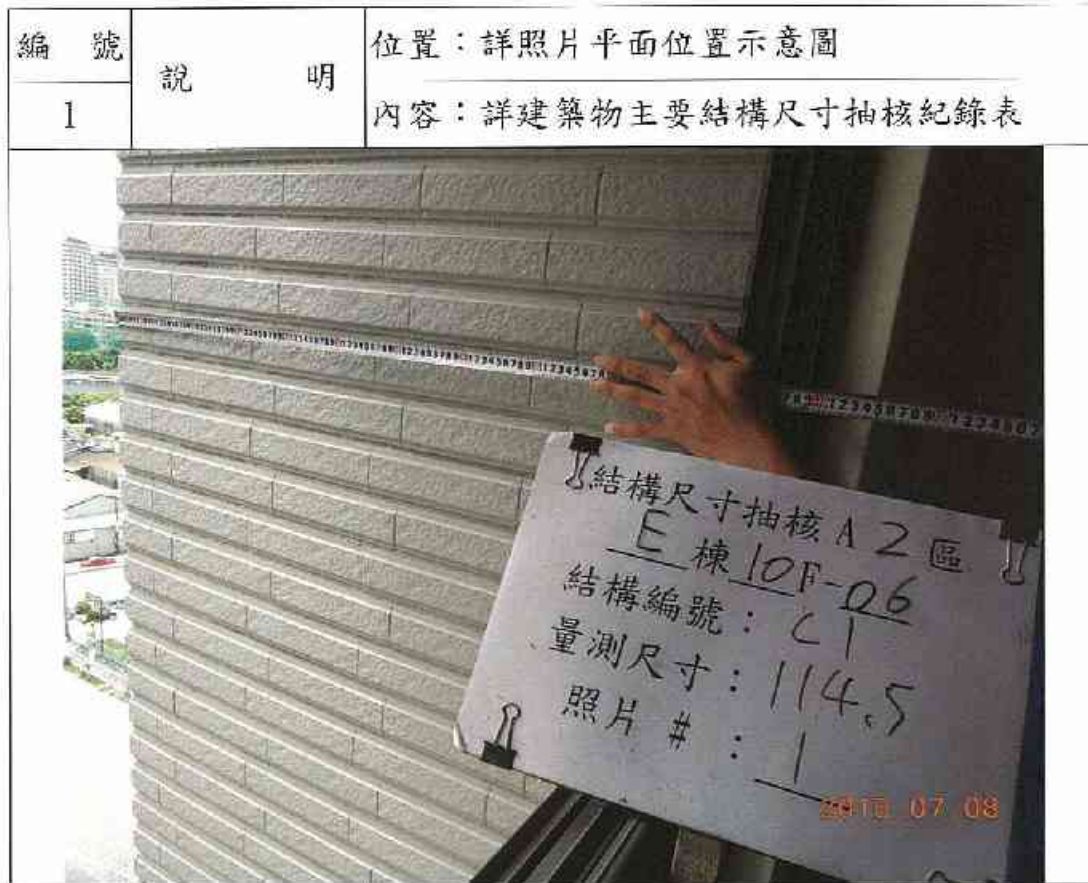 編 號
說 明
位置：詳照片平面位置示意圖
1
內容：詳建築物主要結構尺寸抽核紀錄表
結構尺寸抽核A2區
E棟10F-06
結構編號：C1
量測尺寸：114.5
照片 #：1
07 08